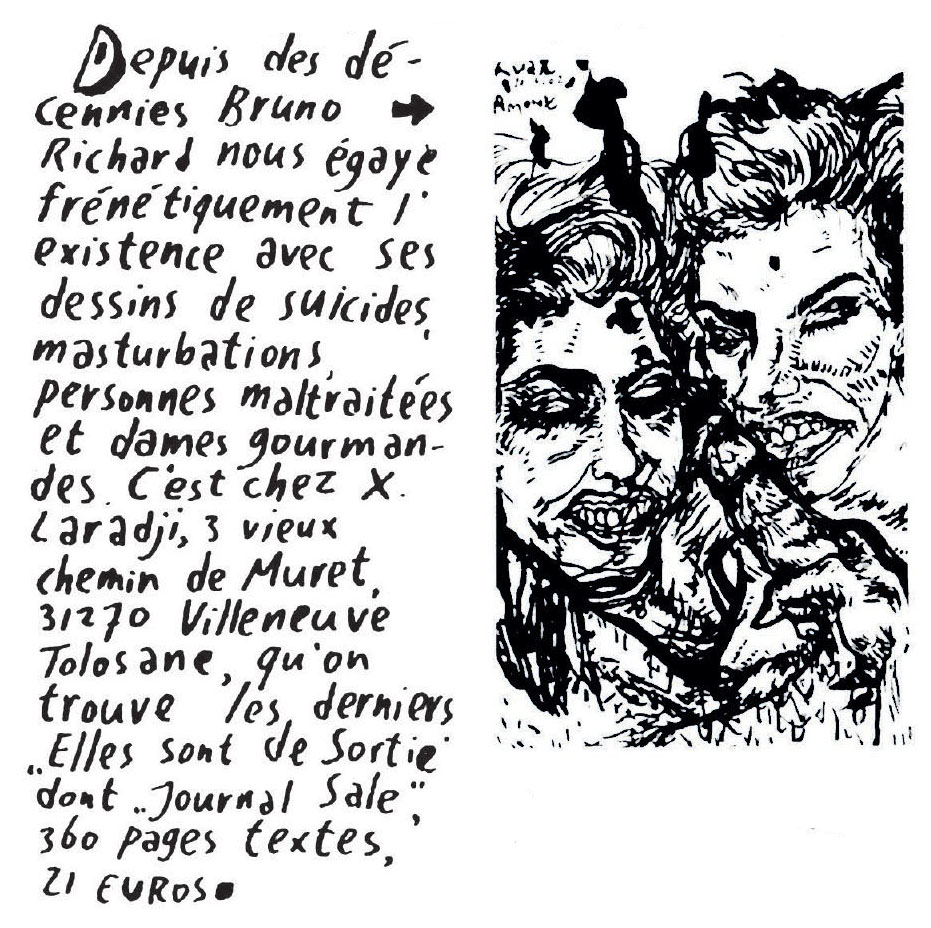 Depuis des dé-
cennies Bruno →
Richard nous égaye
frénétiquement l'
existence avec ses
dessins de suicides,
masturbations,
personnes maltraitées
et dames gourman-
des. C'est chez X.
Laradji, 3 vieux
chemin de Muret,
31270 Villeneuve
Tolosane, qu'on
trouve les derniers
„Elles sont de Sortie"
dont „Journal Sale",
360 pages textes,
21 EUROS.
Amour